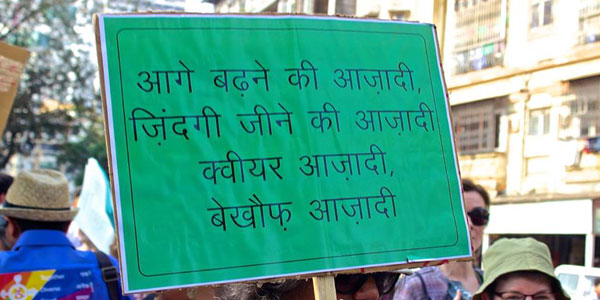 आगे बढ़ने की आज़ादी,
ज़िंदगी जीने की आज़ादी
क्वीयर आज़ादी,
बेख़ौफ़ आज़ादी